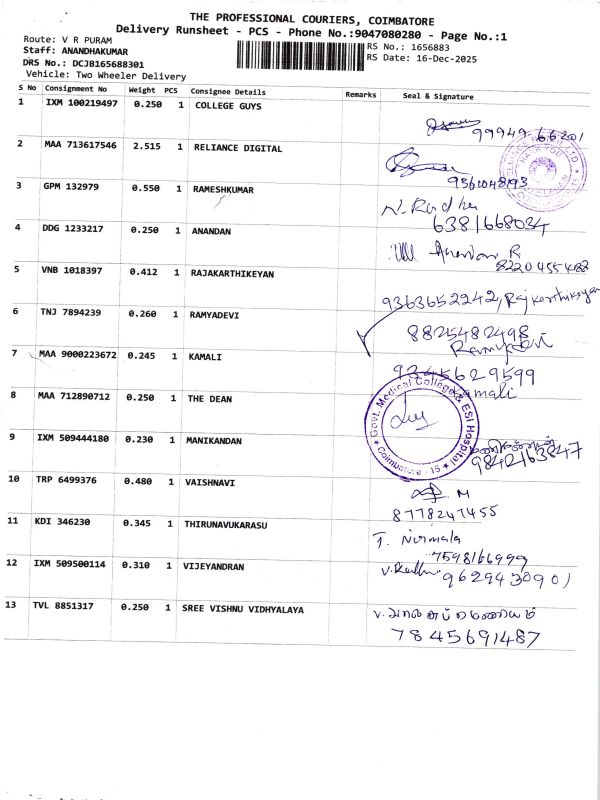 THE PROFESSIONAL COURIERS, COIMBATORE
Delivery Runsheet - PCS - Phone No.:9047080280 - Page No.:1
Route: V R PURAM
Staff: ANANDHAKUMAR
DRS No.: DCJB165688301
Vehicle: Two Wheeler Delivery
RS No.: 1656883
RS Date: 16-Dec-2025
S No Consignment No Weight PCS Consignee Details Remarks Seal & Signature
1 IXM 100219497 0.250 1 COLLEGE GUYS
99949 66201
2 MAA 713617546 2.515 1 RELIANCE DIGITAL
9361048193
3 GPM 132979 0.550 1 RAMESHKUMAR
N. Radha
6381668034
4 DDG 1233217 0.250 1 ANANDAN
Anandan R
8220455488
5 VNB 1018397 0.412 1 RAJAKARTHIKEYAN
9363652242, Rajkarthikeyan
6 TNJ 7894239 0.260 1 RAMYADEVI
8825482498
Ramyadevi
7 MAA 9000223672 0.245 1 KAMALI
9345629599
Kamali
8 MAA 712890712 0.250 1 THE DEAN
Govt. Medical College & ESI Hospital
Coimbatore - 15
9 IXM 509444180 0.230 1 MANIKANDAN
மணிகண்டன்
9842163847
10 TRP 6499376 0.480 1 VAISHNAVI
M
8778247455
11 KDI 346230 0.345 1 THIRUNAVUKARASU
T. Nirmala
7598166999
12 IXM 509500114 0.310 1 VIJEYANDRAN
9629430901
13 TVL 8851317 0.250 1 SREE VISHNU VIDHYALAYA
7845691487